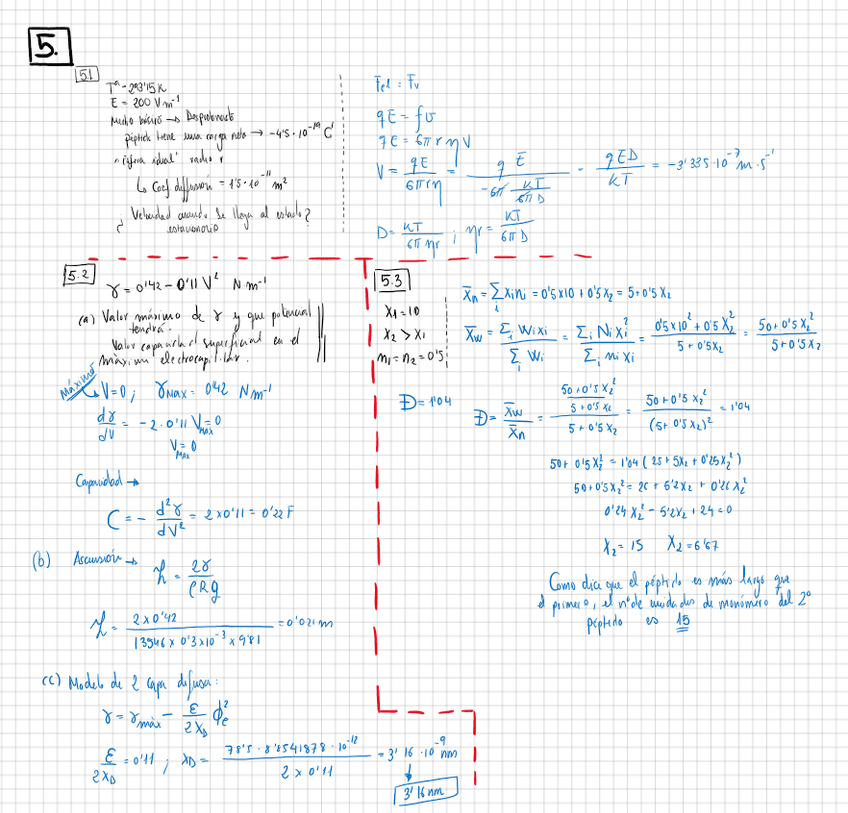 5.
5.1
Tª = 293'15 K
E = 200 V m⁻¹
Medio básico → Desprotonado
péptido tiene una carga neta → -4'5·10⁻¹⁹ C
"esfera ideal" radio r
↳ Coef difusión = 1'5·10⁻¹¹ m²
¿Velocidad cuando se llega al estado estacionario?
Fel = Fv
qE = fv
qE = 6πrηV
V = qE / 6πrη = qE / (-6π kT/6πD) - qED / kT = -3'335·10⁻⁷ m·s⁻¹
D = kT / 6πηr ; ηr = kT / 6πD
5.2
γ = 0'42 - 0'11 V² N m⁻¹
(a) Valor máximo de γ y que potencial tendrá.
Valor capacidad superficial en el máximo electrocapilar.
Máximo
↳ V=0; γmax = 0'42 N m⁻¹
dγ/dV = -2·0'11 Vmax = 0
Vmax = 0
Capacidad →
C = - d²γ/dV² = 2×0'11 = 0'22 F
(b) Ascensión →
h = 2γ / ρRg
h = 2×0'42 / 13546×0'3×10⁻³×9'81 = 0'021 m
(c) Modelo de 2 capa difusa:
γ = γmáx - ε/2χD ϕe²
ε/2χD = 0'11 ; χD = 78'5·8'8541878·10⁻¹² / 2×0'11 = 3'16·10⁻⁹ nm
3'16 nm
5.3
X₁ = 10
X₂ > X₁
n₁ = n₂ = 0'5
Đ = 1'04
X̄n = Σi xini = 0'5×10 + 0'5 X₂ = 5 + 0'5 X₂
X̄w = Σi Wixi / Σi Wi = Σi Ni Xi² / Σi ni xi = 0'5×10² + 0'5 X₂² / 5 + 0'5X₂ = 50 + 0'5 X₂² / 5 + 0'5 X₂
Đ = X̄w / X̄n = (50 + 0'5 X₂² / 5 + 0'5 X₂) / 5 + 0'5 X₂ = 50 + 0'5 X₂² / (5 + 0'5 X₂)² = 1'04
50 + 0'5 X₂² = 1'04 (25 + 5X₂ + 0'25X₂²)
50 + 0'5 X₂² = 26 + 5'2 X₂ + 0'26 X₂²
0'24 X₂² - 5'2 X₂ + 24 = 0
X₂ = 15 X₂ = 6'67
Como dice que el péptido es más largo que
el primero, el nº de unidades de monómero del 2º
péptido es 15